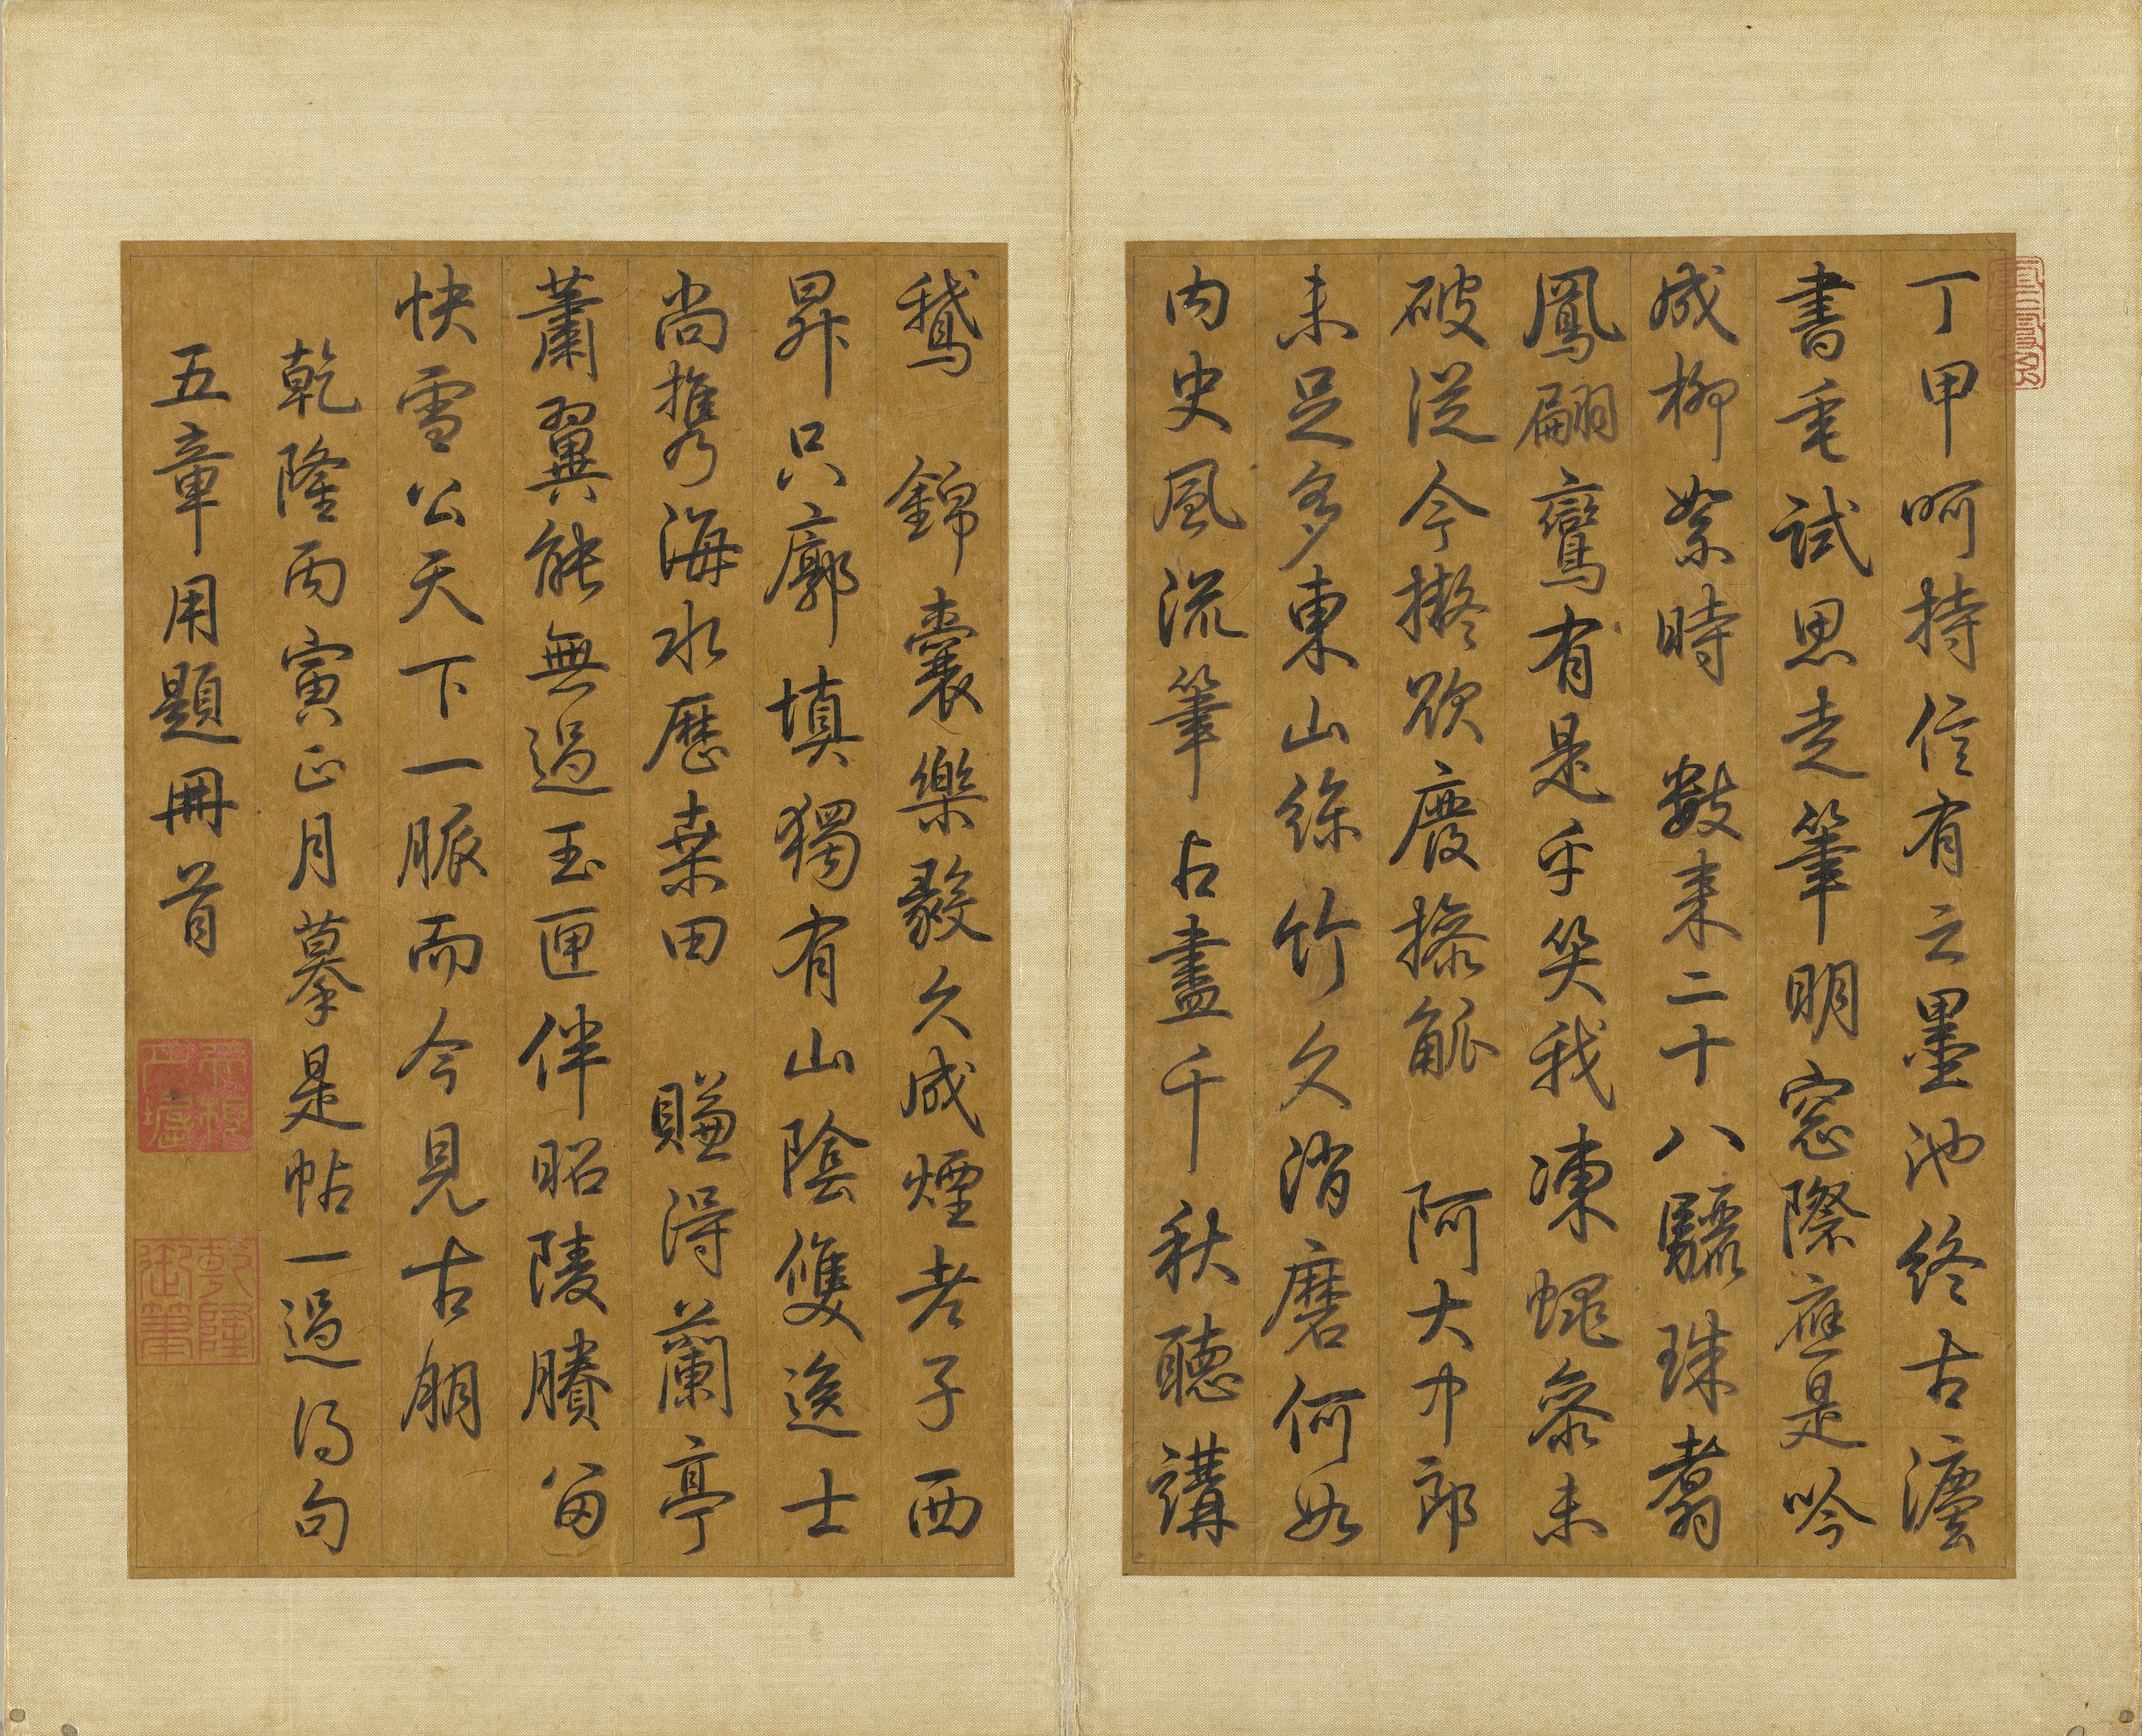 丁甲呵持信有之墨池終古灋
書垂試思走筆明窓際應是吟
成柳絮時 數来二十八驪珠翥
鳳翩鸞有是乎笑我凍蠅叅未
破從今擬欲廢操觚 阿大中郎
未足多東山絲竹久消磨何如
内史風流筆占盡千秋聽講
鵝 錦囊樂毅久成煙老子西
昇只廓填獨有山陰雙逸士
尚携海水歷桒田 賺得蘭亭
蕭翼能無過玉匣伴昭陵賸留
快雪公天下一脈而今見古朋
乾隆丙寅正月摹是帖一過得句
五章用題冊首
乾隆御筆